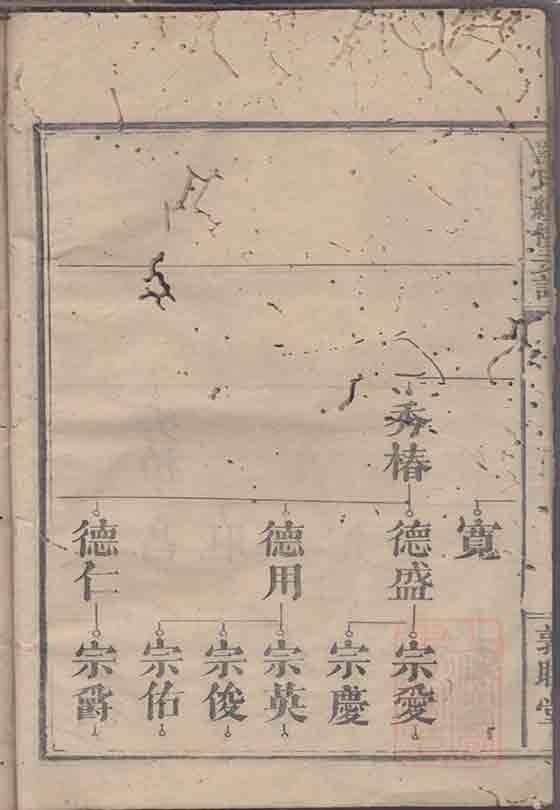 秀椿
寬
德盛
德用
德仁
宗愛
宗慶
宗英
宗俊
宗佑
宗爵
敦睦堂